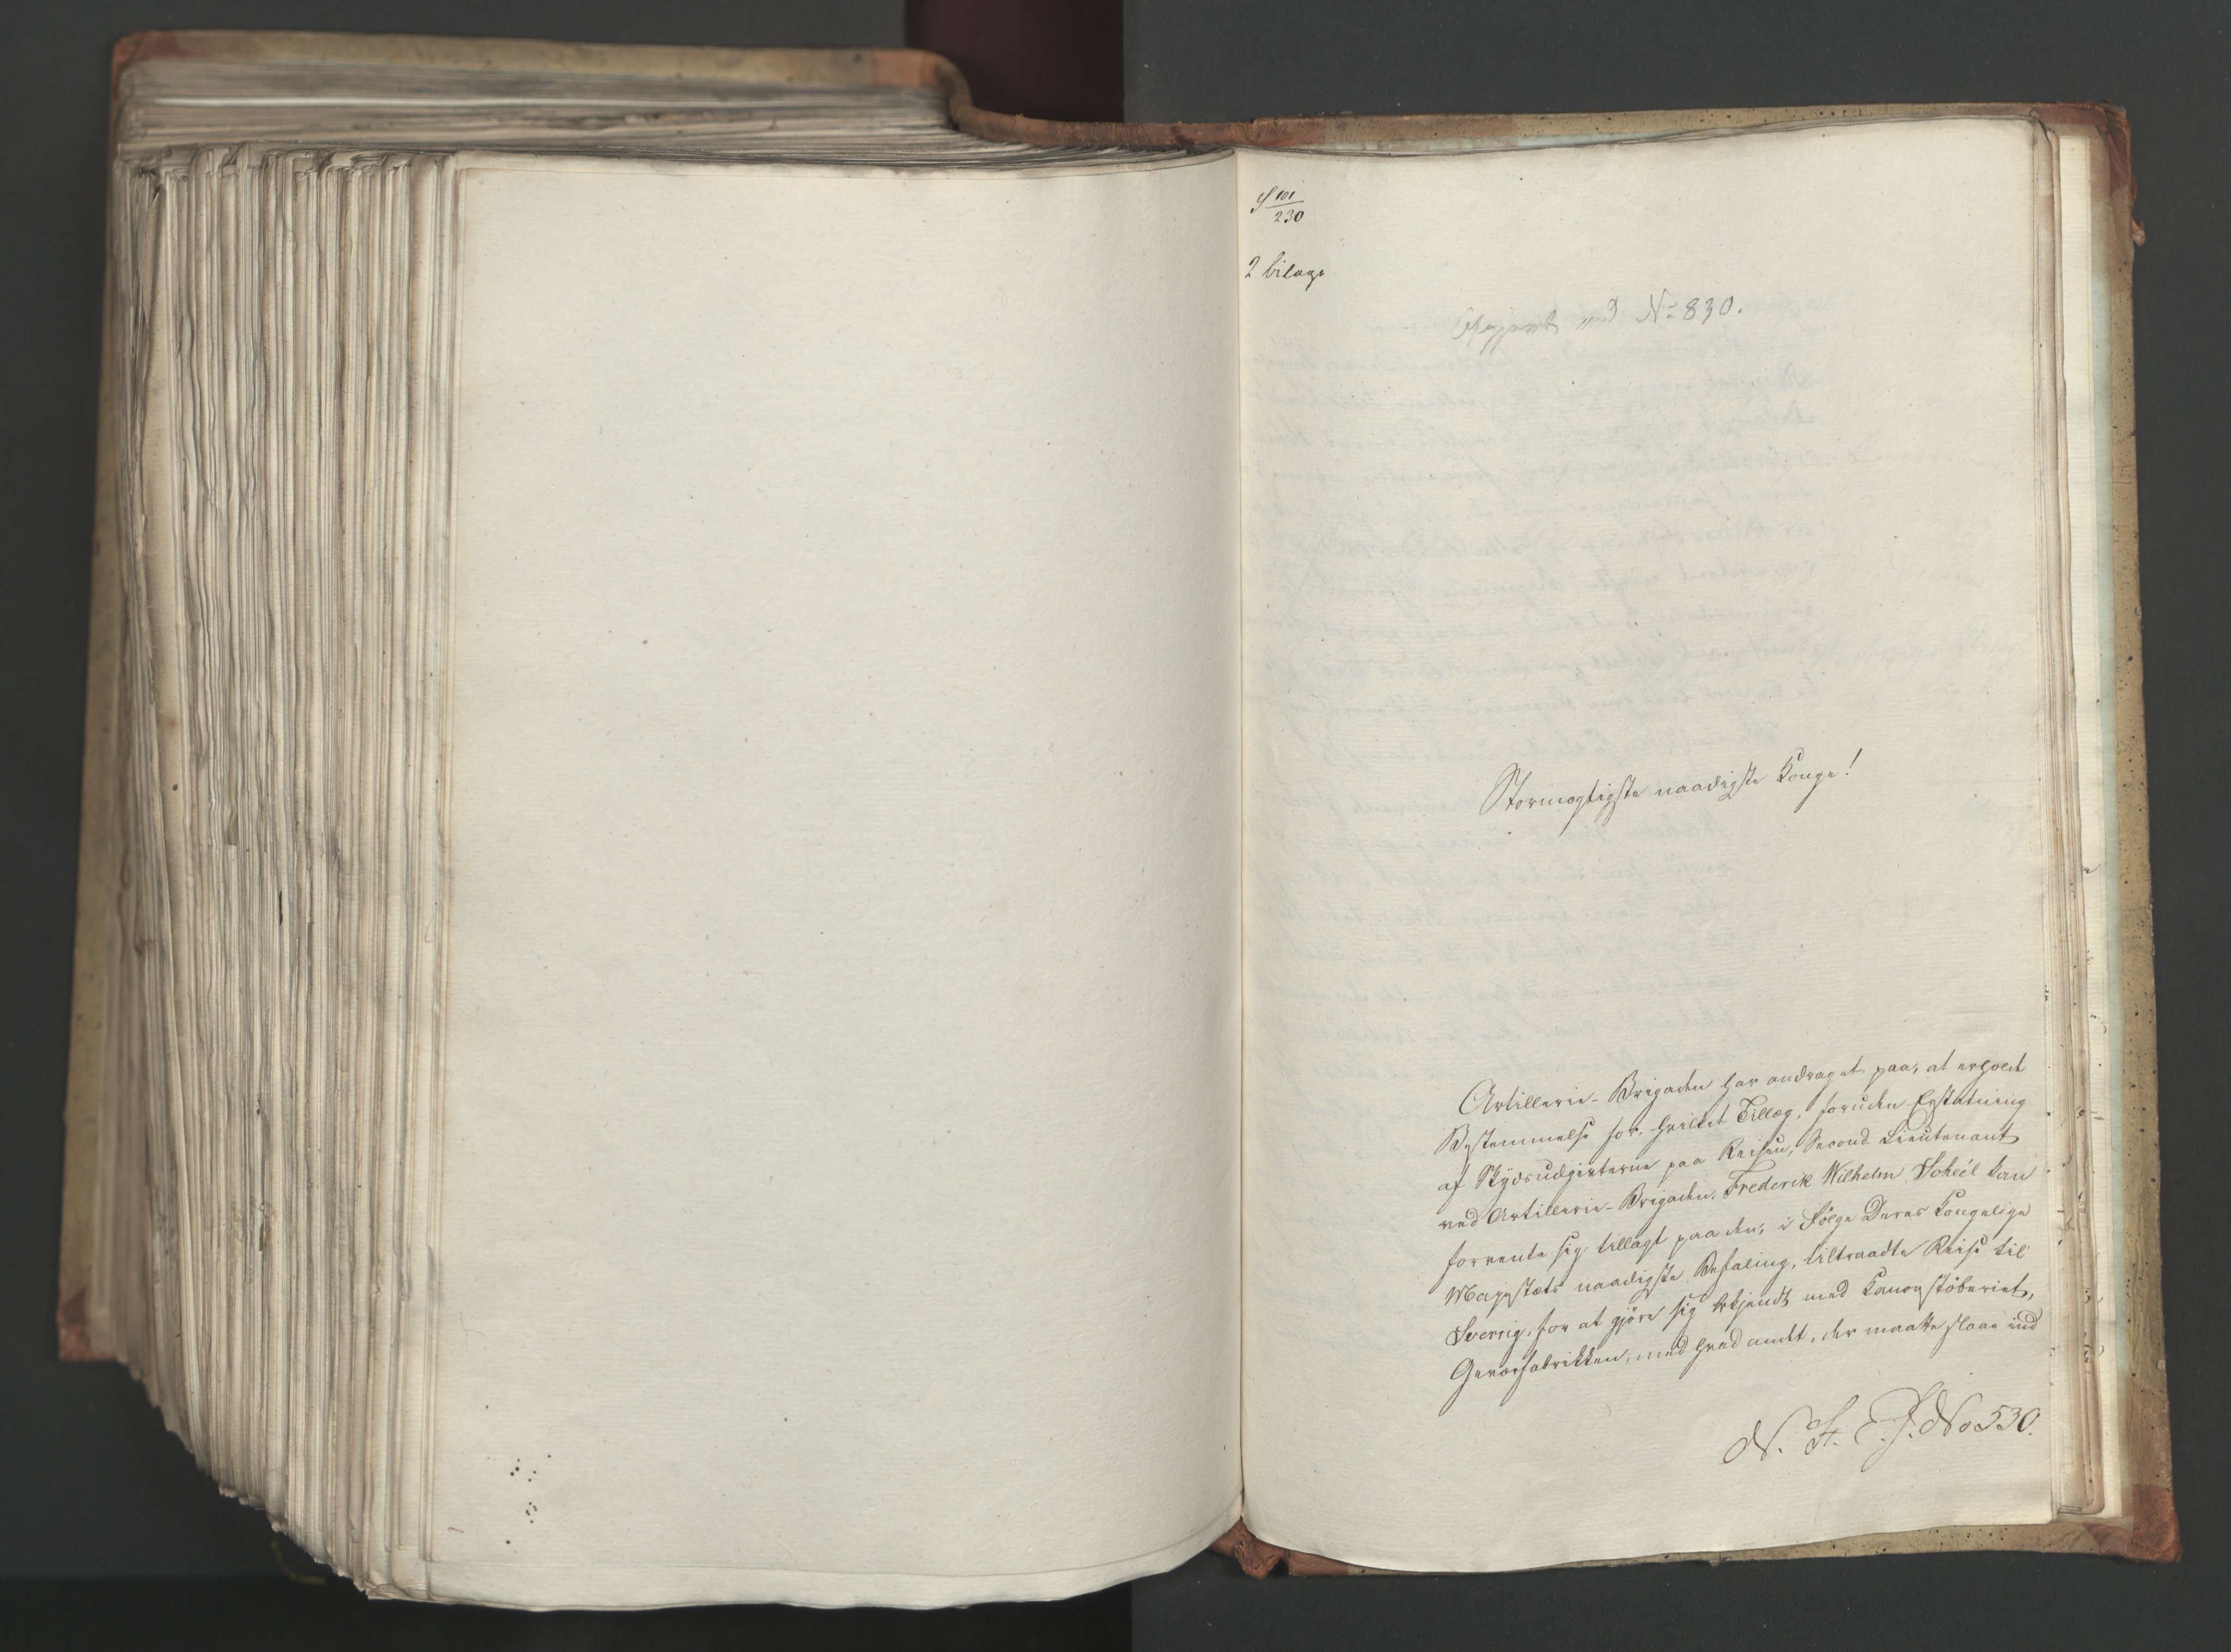 S 101/230
2 bilage
med No 830.
Stormægtigste naadigste Konge!
Artillerie-Brigaden har andraget paa, at erholde
Bestemmelse for, hvilket Tillæg, foruden Erstatning
af Skydsudgivterne paa Reisen, Second-Lieutenant
ved Artillerie-Brigaden, Frederik Wilhelm Scheel kan
forvente sig tillagt paa den, i Følge Deres Kongelige
Majestæts naadigste Befaling, tiltraadte Reise til
Sverrig, for at gjøre sig bekjendt med Kanonstøberiet,
Geværfabrikken, med hvad andet, der maatte slaae ind
N. H. P. No 530.